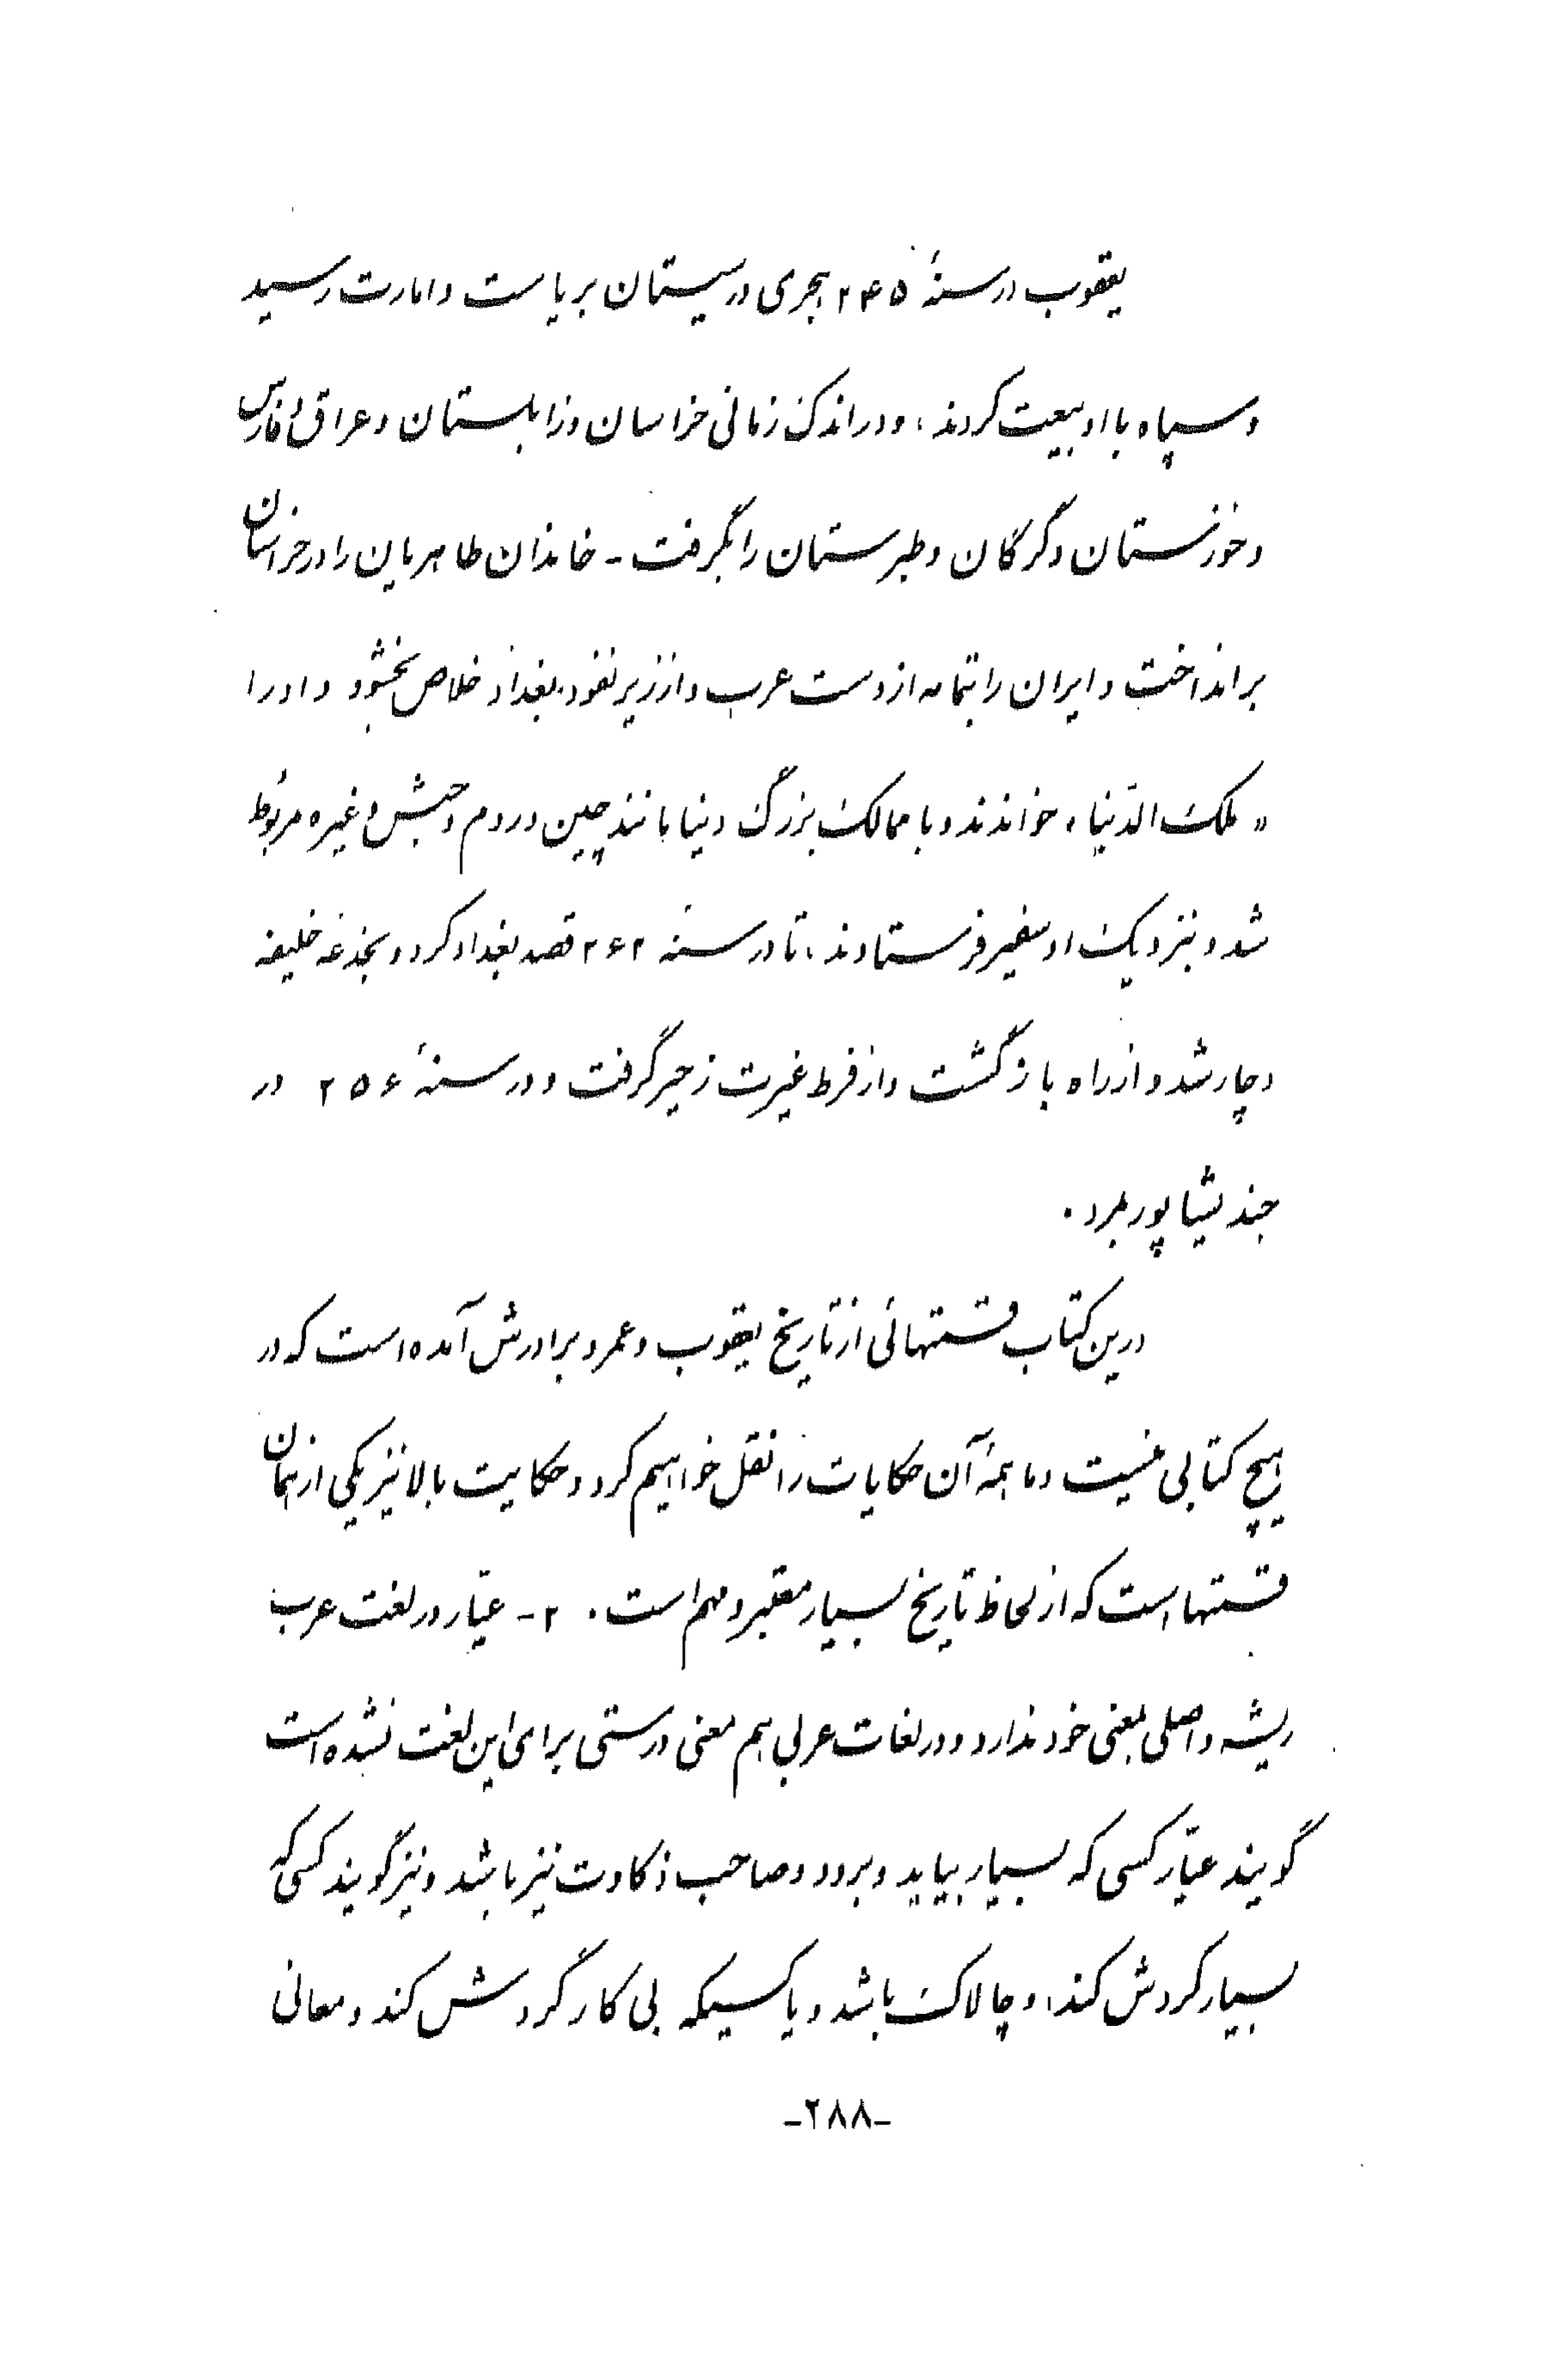 یعقوب در سنهٔ ۲۴۵ هجری در سیستان بریاست و امارت رسید
و سپاه با او بیعت کردند، و در اندک زمانی خراسان و زابلستان و عراق و فارس
و خوزستان و گرگان و طبرستان را بگرفت - خاندان طاهریان را در خراسان
برانداخت و ایران را بتمامه از دست عرب و از زیر نفوذ بغداد خلاص بخشود و او را
«ملک الدّنیا» خواندند و با ممالک بزرگ دنیا مانند چین و روم و حبش و غیره مربوط
شد و بنزدیک او سفیر فرستادند، تا در سنه ۲۶۲ قصد بغداد کرد و بخدعه خلیفه
دچار شد و از راه بازگشت و از فرط غیرت زحیر گرفت و در سنهٔ ۲۵۶ در
جندیشاپور بمرد.
درین کتاب قسمتهائی از تاریخ یعقوب و عمرو برادرش آمده است که در
هیچ کتابی نیست و ما همهٔ آن حکایات را نقل خواهیم کرد و حکایت بالا نیز یکی از همان
قسمتها است که از لحاظ تاریخ بسیار معتبر و مهم است. ۲- عیّار در لغت عرب
ریشه و اصلی بمعنی خود ندارد و در لغات عربی هم معنی درستی برای این لغت نشده است
گویند عیّار کسی که بسیار بیاید و برود و صاحب ذکاوت نیز باشد و نیز گویند کسی که
بسیار گردش کند، و چالاک باشد و یا کسیکه بی کار گردش کند و معانی
-۲۸۸-